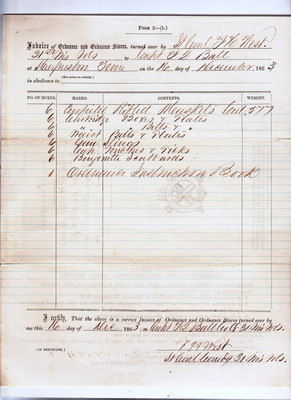 FORM 5—(b.)
Invoice of Ordnance and Ordnance Stores, turned over by Lt Conl F H West.
31st Wis Vols to Capt F L Ball
at Murfreesboro Tenn on the 16 day of December 1863
in obedience to
NO. OF BOXES. MARKS. CONTENTS. WEIGHT.
6 Enfield Rifled Muskets Cal .577
6 Cartridge Boxes & Plates
6 " " Belts & "
6 Waist Belts & Plates
6 Gun Slings
6 Cap Pouches & Picks
6 Bayonette Scabbards
1 Ordnance Instruction Book
I certify, That the above is a correct Invoice of Ordnance and Ordnance Stores turned over by
me this 16 day of Dec 1863, to Capt F L Ball Co 31 Wis Vols.
(IN DUPLICATE.)
F H West
Lt Conl Comdg 31 Wis Vols.